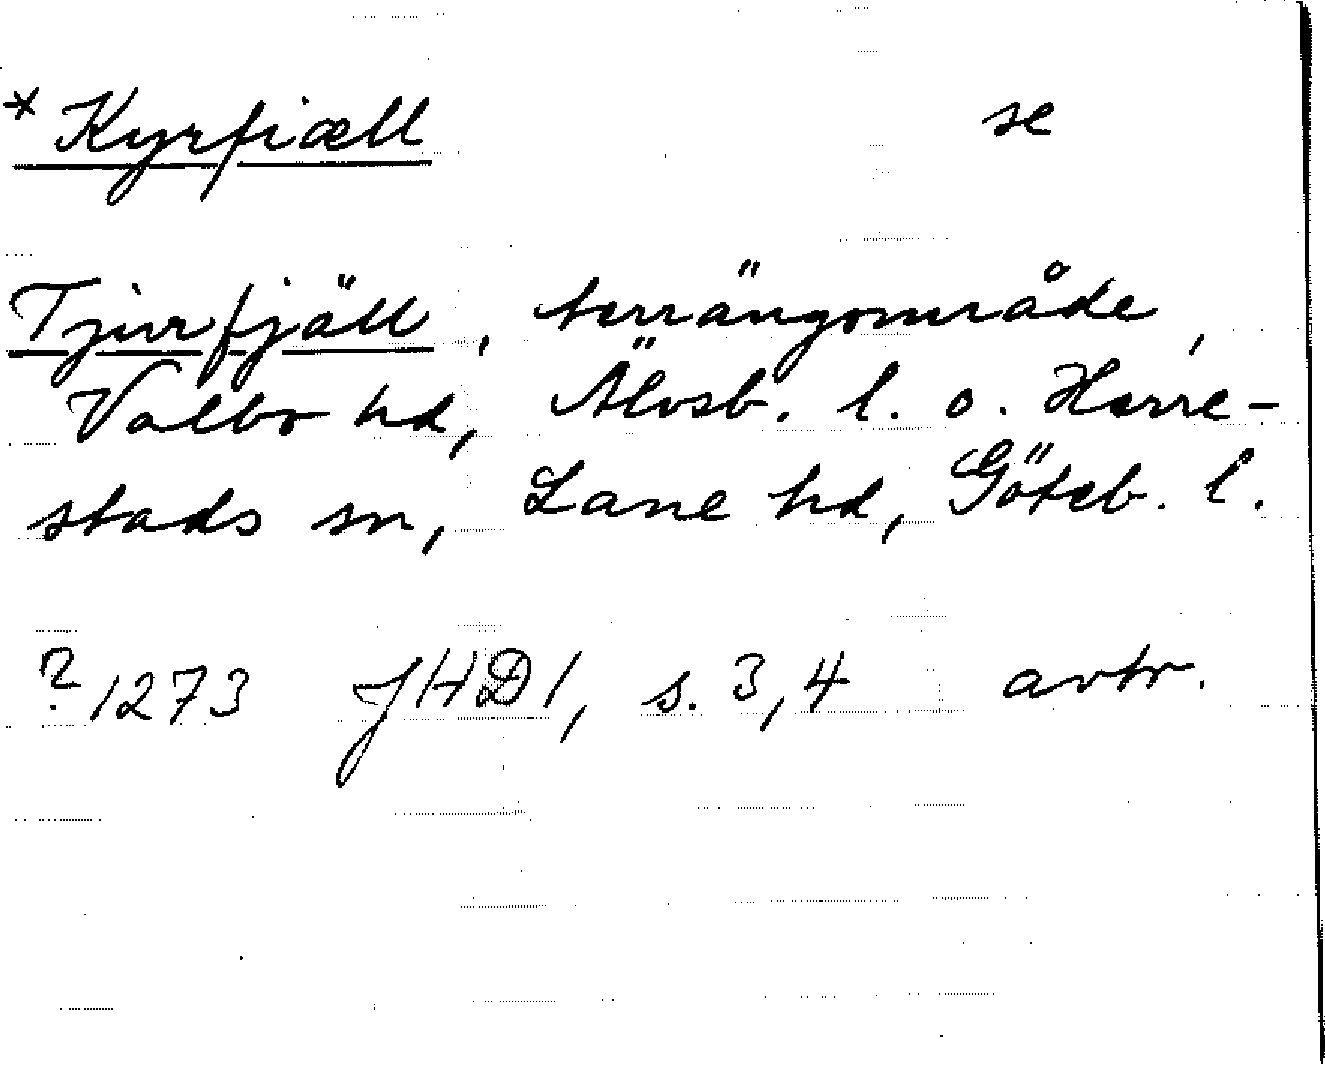 * Kyrfiæll se
Tjurfjäll, terrängområde,
Valbo hd, Älvsb. l. o. Herre-
stads sn, Lane hd, Göteb. l.
? 1273 JHD 1, s. 3, 4 avtr.